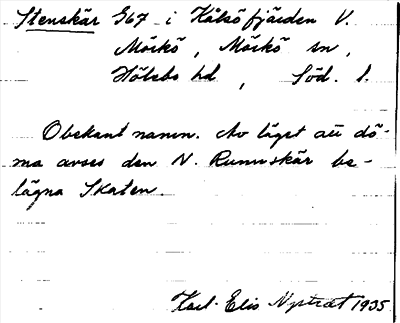 Stenskär 967 i Hålsöfjärden V.
Mörkö, Mörkö sn,
Hölebo hd, Söd. l.
Obekant namn. Av läget att dö-
ma avses den N. Runnskär be-
lägna Skaten.
Karl-Elis Nystrat 1935